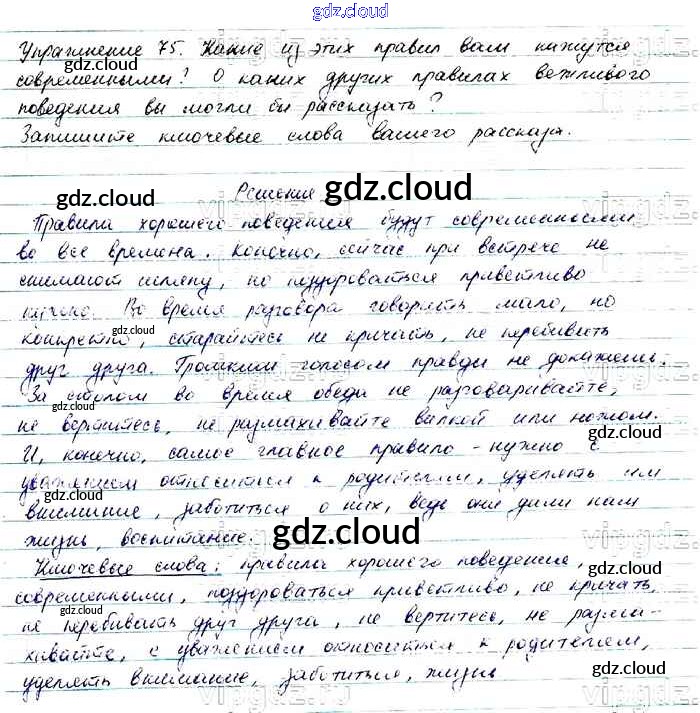 gdz.cloud
Упражнение 75. Какие из этих правил вам кажутся
современными? О каких других правилах вежливого
поведения вы могли бы рассказать?
Запишите ключевые слова вашего рассказа.
Решение
Правила хорошего поведения будут современными
во все времена. Конечно, сейчас при встрече не
снимают шляпу, но поздороваться приветливо
нужно. Во время разговора говорить мало, но
конкретно, старайтесь не кричать, не перебивать
друг друга. Громким голосом правды не докажешь.
За столом во время обеда не разговаривайте,
не вертитесь, не размахивайте вилкой или ножом.
И, конечно, самое главное правило - нужно с
уважением относиться к родителям, уделять им
внимание, заботиться о них, ведь они дали нам
жизнь, воспитание.
Ключевые слова: правила хорошего поведения,
современными, поздороваться приветливо, не кричать,
не перебивать друг друга, не вертитесь, не разма-
хивайте, с уважением относиться к родителям,
уделять внимание, заботиться, жизнь